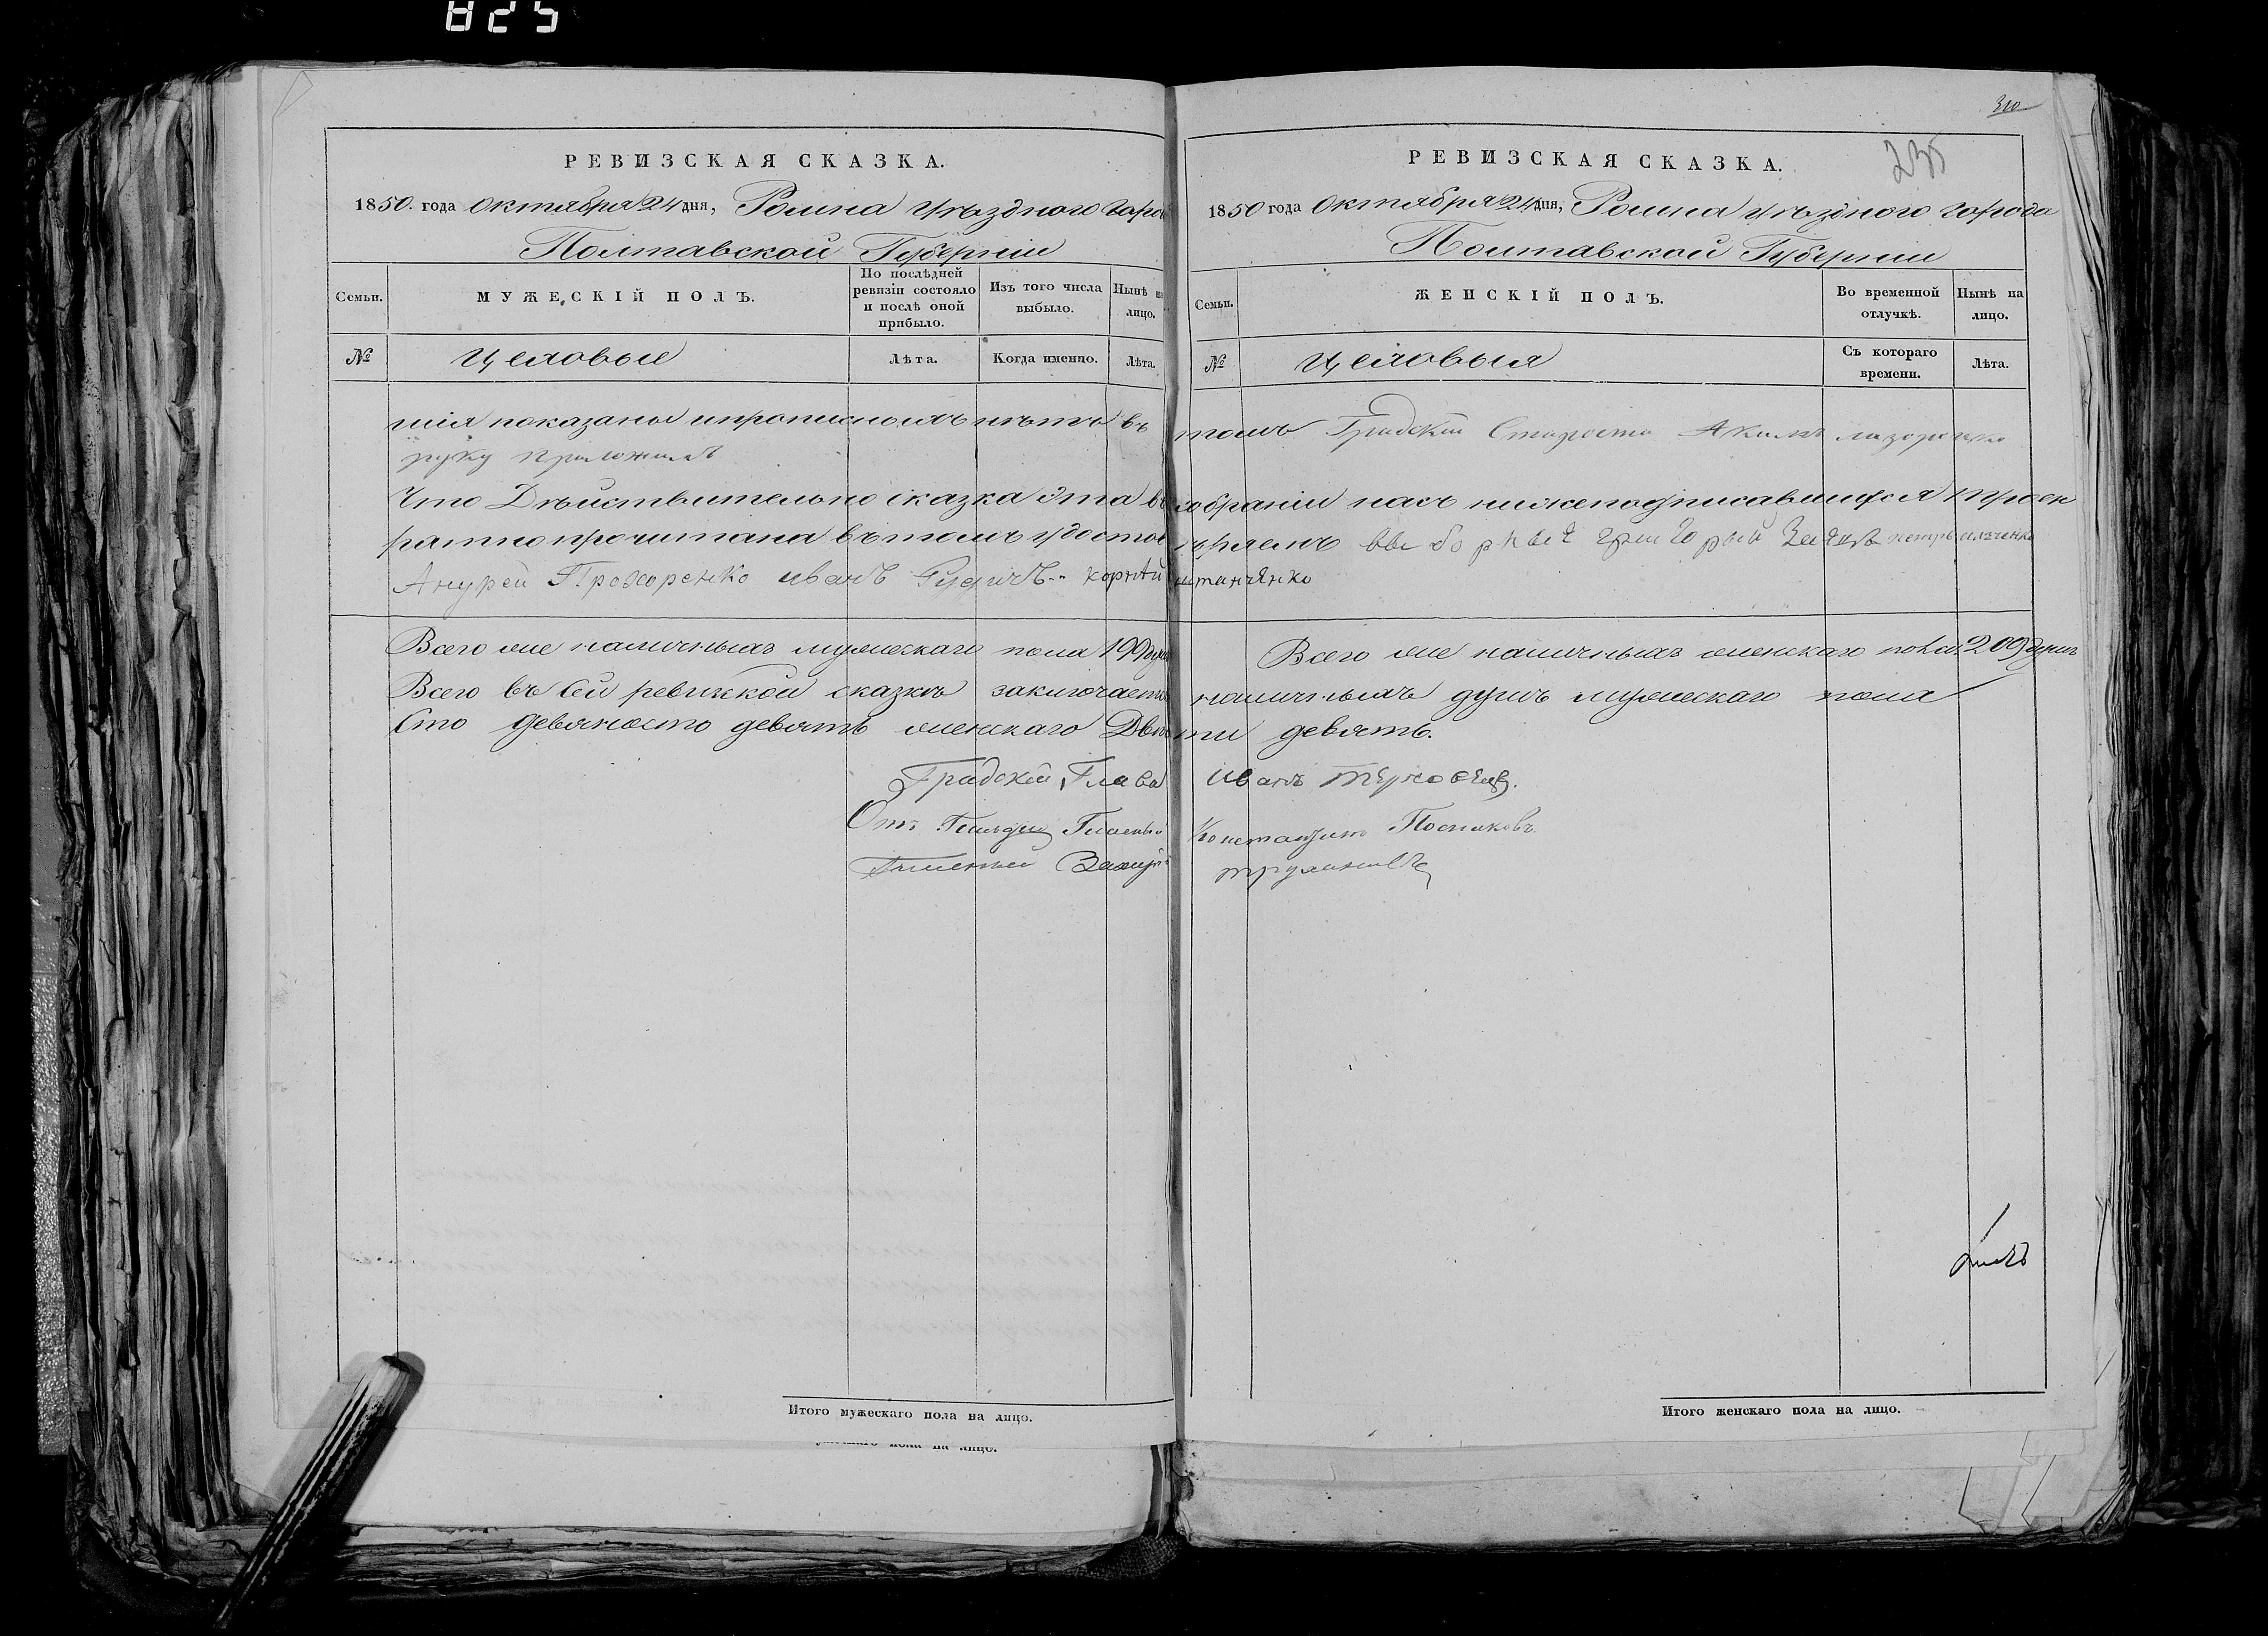 825
310
235
РЕВИЗСКАЯ СКАЗКА.
1850 года Октября 24 дня, Ромна уѣзднаго горо
Полтавской Губерніи
Семьи.
МУЖЕСКІЙ ПОЛЪ.
По послѣдней ревизіи состояло и послѣ оной прибыло.
Изъ того числа выбыло.
Нынѣ на лицо.
№
Цеховые
Лѣта.
Когда именно.
Лѣта.
РЕВИЗСКАЯ СКАЗКА.
1850 года Октября 24 дня, Ромна уѣзднаго города
Полтавской Губерніи
Семьи.
ЖЕНСКІЙ ПОЛЪ.
Во временной отлучкѣ.
Нынѣ на лицо.
№
Цеховыя
Съ котораго времени.
Лѣта.
шія показаны и прописныхъ нѣтъ въ томъ Градскій Староста
руку приложилъ
Что Дѣйствительно сказка эта въ собраніи насъ нижеподписавшихся троек
ратно прочитана въ томъ удостовѣряемъ Григорый Петръ
Андрей Прохоренко иванъ корнѣй
Всего же наличныхъ мужескаго пола 199 душъ
Всего же наличныхъ женскаго пола 209 душъ
Всего въ сей ревизской сказкѣ заключается наличныхъ душъ мужескаго пола
Сто девяносто девять женскаго Двѣсти девять.
Градскій Глава Иванъ
Отъ Гильдіи Гласный Константинъ Посниковъ
Гласный
Итого мужескаго пола на лицо.
Итого женскаго пола на лицо.
пола на лицо.